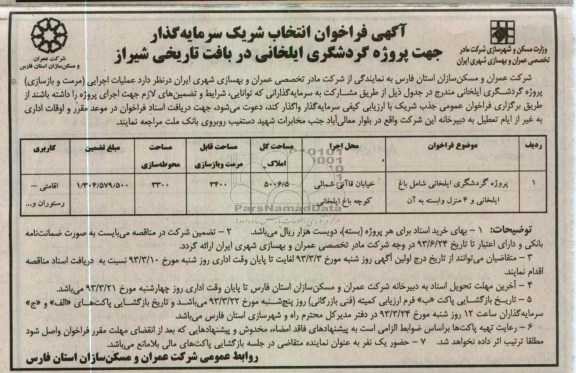 آگهی فراخوان انتخاب شریک سرمایه‌گذار
جهت پروژه گردشگری ایلخانی در بافت تاریخی شیراز
وزارت مسکن و شهرسازی شرکت مادر
تخصصی عمران و بهسازی شهری ایران
شرکت عمران و
مسکن‌سازان استان فارس
شرکت عمران و مسکن‌سازان استان فارس به نمایندگی از شرکت مادر تخصصی عمران و بهسازی شهری ایران درنظر دارد عملیات اجرایی (مرمت و بازسازی)
پروژه گردشگری ایلخانی مندرج در جدول ذیل از طریق مشارکت به سرمایه‌گذارانی که توانایی، شرایط و تضمین‌های لازم جهت اجرای پروژه را داشته باشند از
طریق برگزاری فراخوان عمومی جذب شریک با ارزیابی کیفی سرمایه‌گذار واگذار کند، دعوت می‌شود، جهت دریافت اسناد فراخوان در موعد مقرر و اوقات اداری
به غیر از ایام تعطیل به دبیرخانه این شرکت واقع در بلوار معالی‌آباد جنب مخابرات شهید دستغیب روبروی بانک ملت مراجعه نمایند.
ردیف موضوع فراخوان محل اجرا مساحت کل املاک مساحت قابل مرمت وبازسازی مساحت محوطه‌سازی مبلغ تضمین کاربری
۱ پروژه گردشگری ایلخانی شامل باغ ایلخانی و ۴ منزل وابسته به آن خیابان قاآنی شمالی کوچه باغ ایلخانی ۵۰۰۶/۵ ۳۴۰۰ ۳۳۰۰ ۱/۳۰۴/۵۷۹/۵۰۰ اقامتی – رستوران و...
ParsNamadData
توضیحات: ۱ - بهای خرید اسناد برای هر پروژه (بسته)، دویست هزار ریال می‌باشد. ۲ - تضمین شرکت در مناقصه می‌بایست به صورت ضمانتنامه
بانکی و دارای اعتبار تا تاریخ ۹۳/۶/۲۴ در وجه شرکت مادر تخصصی عمران و بهسازی شهری ایران ارائه گردد.
۳ - متقاضیان می‌توانند از تاریخ درج اولین آگهی روز شنبه مورخ ۹۳/۳/۳ لغایت تا پایان وقت اداری روز شنبه مورخ ۹۳/۳/۱۰ نسبت به دریافت اسناد مناقصه
اقدام نمایند.
۴ - آخرین مهلت تحویل اسناد به دبیرخانه شرکت عمران و مسکن‌سازان استان فارس تا پایان وقت اداری روز چهارشنبه مورخ ۹۳/۳/۲۱ می‌باشد.
۵ - تاریخ بازگشایی پاکت «ب» فرم ارزیابی کمیته (فنی بازرگانی) روز پنج‌شنبه مورخ ۹۳/۳/۲۲ می‌باشد و تاریخ بازگشایی پاکت‌های «الف» و «ج»
سرمایه‌گذاران ساعت ۱۲ روز شنبه مورخ ۹۳/۳/۲۴ در دفتر مدیرکل محترم راه و شهرسازی استان فارس می‌باشد.
۶ - رعایت تهیه پاکت‌ها براساس ضوابط الزامی است به پیشنهادهای فاقد امضاء، مخدوش و پیشنهادهایی که بعد از انقضای مهلت مقرر فراخوان واصل شود
مطلقا ترتیب اثر داده نخواهد شد. ۷ - حضور یک نفر به عنوان نماینده متقاضی در جلسه بازگشایی پاکت‌های مالی بلامانع می‌باشد.
روابط عمومی شرکت عمران و مسکن‌سازان استان فارس